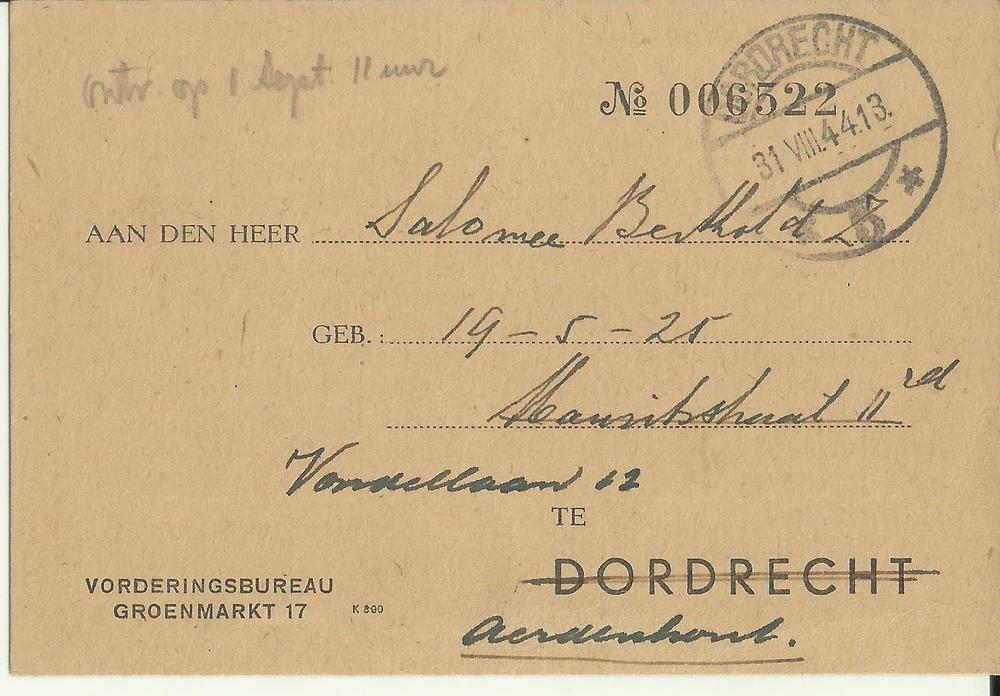 ontv. op 1 Sept. 11 uur
No 006522
DORDRECHT
31 VIII.44.13.
AAN DEN HEER Salomee Berthold
GEB.: 19-5-25
Mauritsstraat 11 rd
Vondellaan 62
TE
DORDRECHT
VORDERINGSBUREAU
GROENMARKT 17 K 890
Aerdenhout.